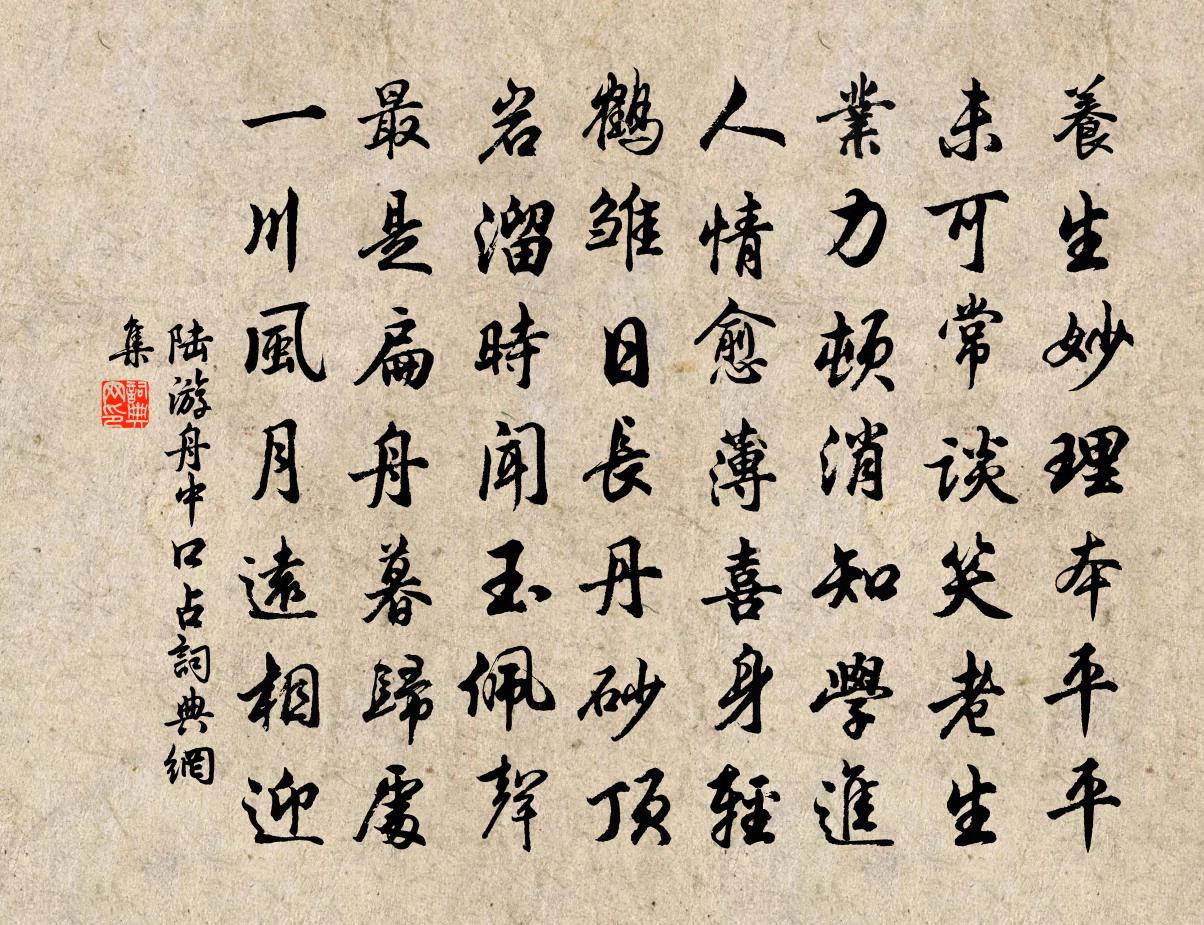 養生妙理本平平
未可常談笑老生
業力頓消知學進
人情愈薄喜身輕
鶴雛日長丹砂頂
岩溜時聞玉佩聲
最是扁舟暮歸處
一川風月遠相迎
陆游舟中口占詞典網
集
詞典网印